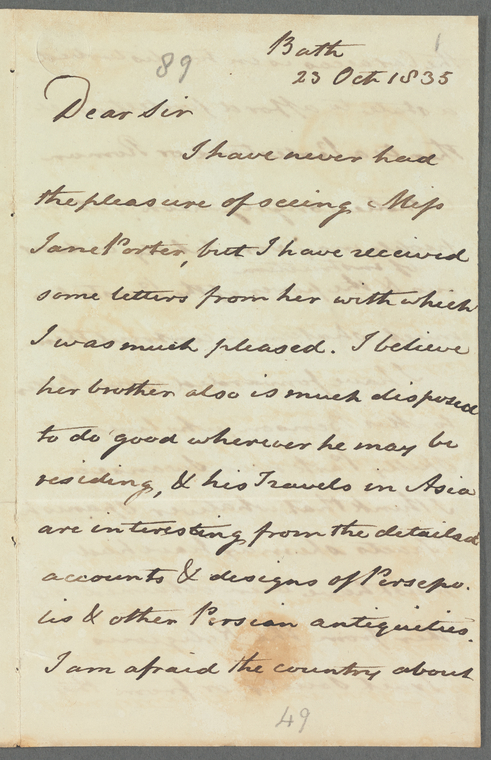 1
89
Bath
23 Oct 1835
Dear Sir
I have never had
the pleasure of seeing Miss
Jane Porter, but I have received
some letters from her with which
I was much pleased. I believe
her brother also is much disposed
to do good wherever he may be
residing, & his Travels in Asia
are interesting from the detailed
accounts & designs of Persepo.
lis & other Persian antiquities.
I am afraid the country about
49